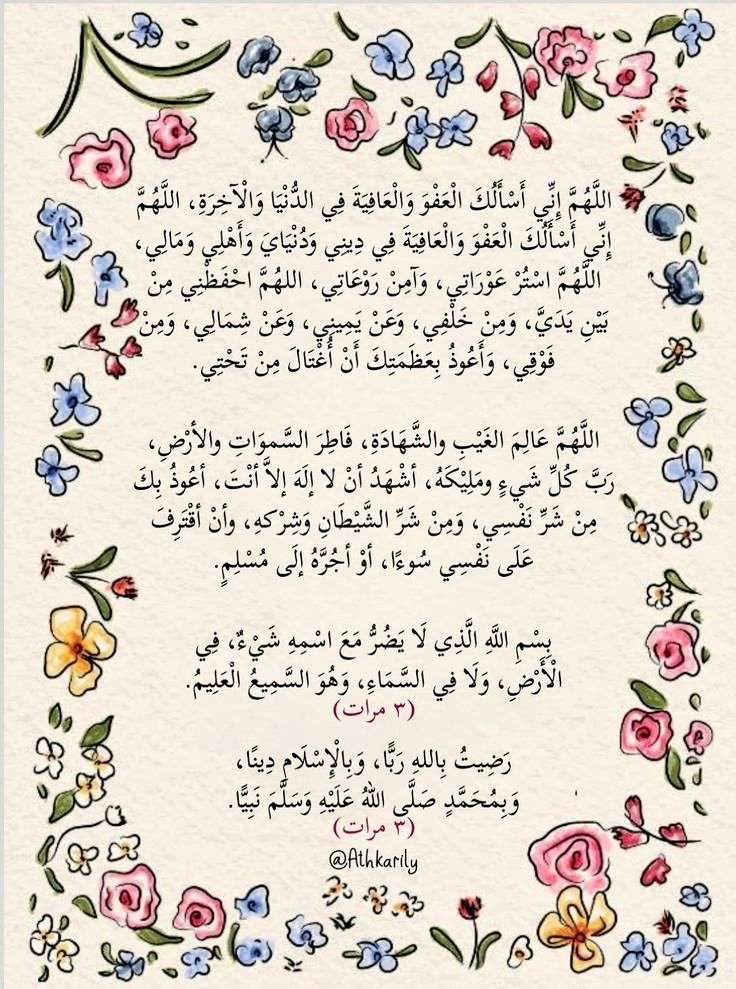 اللَّهُمَّ إِنِّي أَسْأَلُكَ الْعَفْوَ وَالْعَافِيَةَ فِي الدُّنْيَا وَالْآخِرَةِ، اللَّهُمَّ
إِنِّي أَسْأَلُكَ الْعَفْوَ وَالْعَافِيَةَ فِي دِينِي وَدُنْيَايَ وَأَهْلِي وَمَالِي،
اللَّهُمَّ اسْتُرْ عَوْرَاتِي، وَآمِنْ رَوْعَاتِي، اللهُمَّ احْفَظْنِي مِنْ
بَيْنِ يَدَيَّ، وَمِنْ خَلْفِي، وَعَنْ يَمِينِي، وَعَنْ شِمَالِي، وَمِنْ
فَوْقِي، وَأَعُوذُ بِعَظَمَتِكَ أَنْ أُغْتَالَ مِنْ تَحْتِي.
اللَّهُمَّ عَالِمَ الغَيْبِ والشَّهَادَةِ، فَاطِرَ السَّموَاتِ والأرْضِ،
رَبَّ كُلِّ شَيءٍ ومَلِيْكَهُ، أشْهَدُ أنْ لا إلَهَ إلاَّ أنْتَ، أعُوذُ بِكَ
مِنْ شَرِّ نَفْسِي، وَمِنْ شَرِّ الشَّيْطَانِ وَشِرْكهِ، وأنْ أقْتَرِفَ
عَلَى نَفْسِي سُوءًا، أوْ أجُرَّهُ إلَى مُسْلِمٍ.
بِسْمِ اللَّهِ الَّذِي لَا يَضُرُّ مَعَ اسْمِهِ شَيْءٌ، فِي
الْأَرْضِ، وَلَا فِي السَّمَاءِ، وَهُوَ السَّمِيعُ الْعَلِيمُ.
(٣ مرات)
رَضِيتُ بِاللهِ رَبًّا، وَبِالْإِسْلَامِ دِينًا،
وَبِمُحَمَّدٍ صَلَّى اللهُ عَلَيْهِ وَسَلَّمَ نَبِيًّا.
(٣ مرات)
@Athkarily